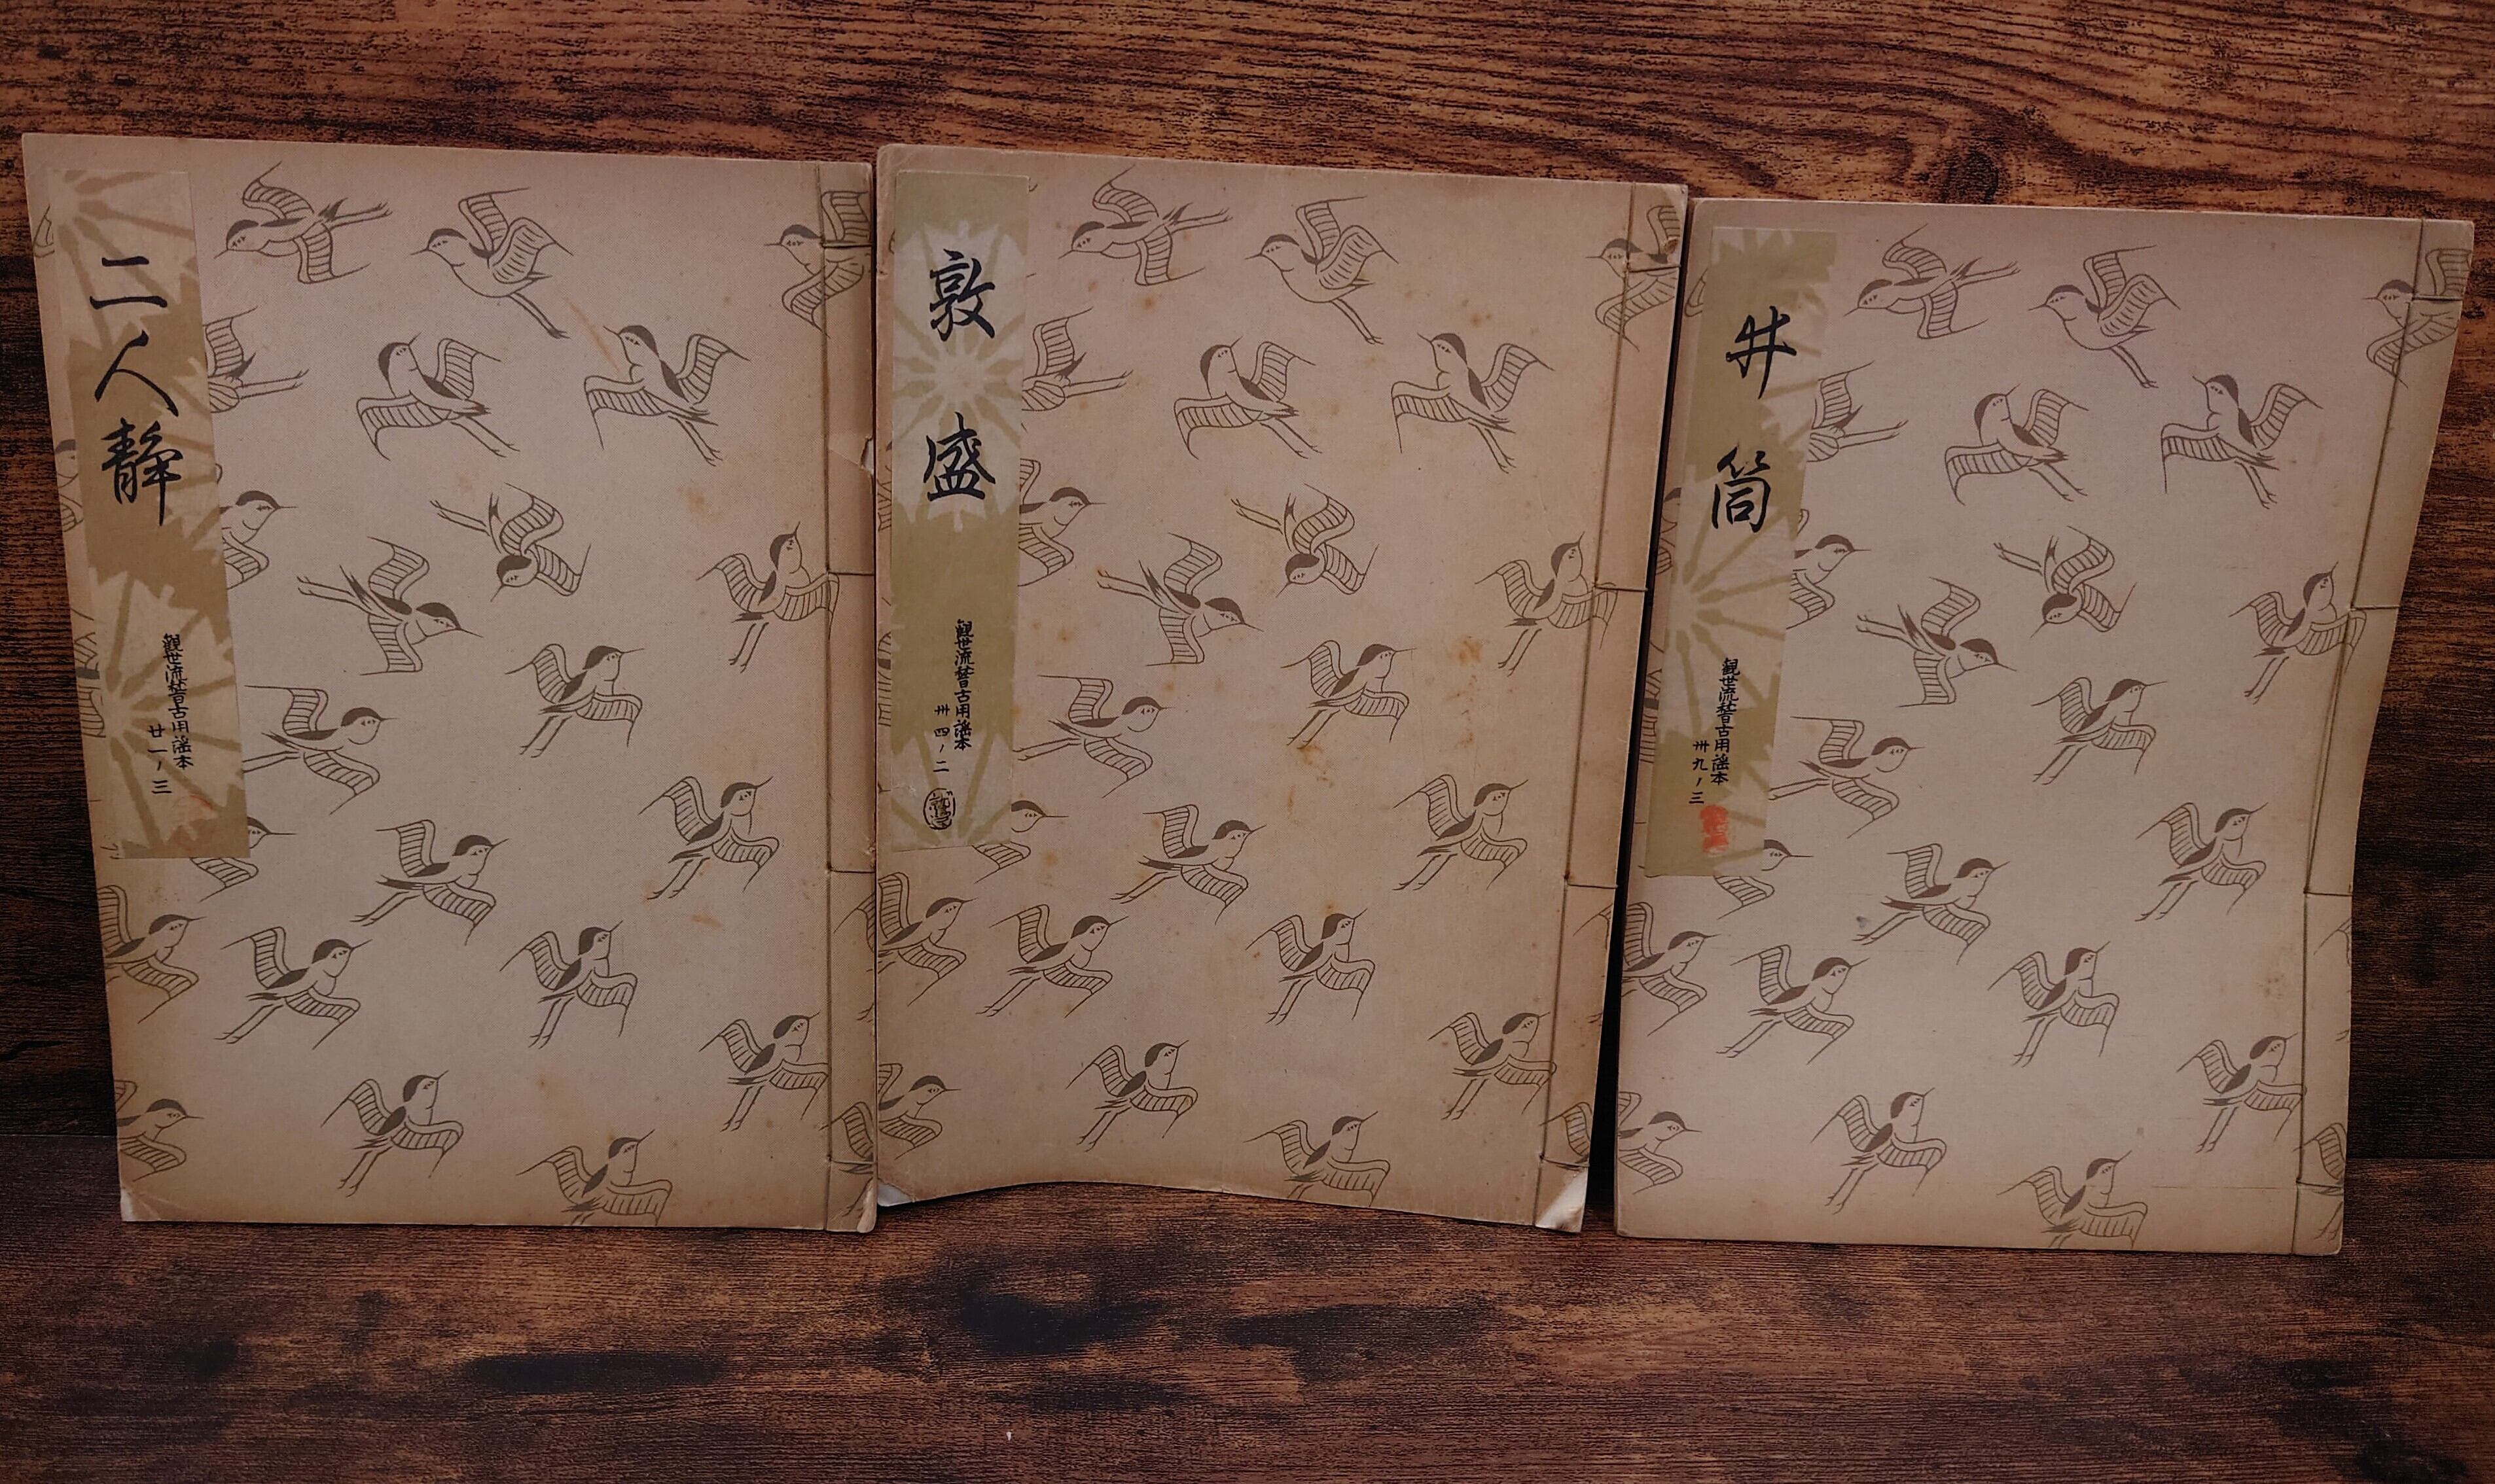 二人静
観世流稽古用謡本
廿一ノ三
敦盛
観世流稽古用謡本
卅四ノ二
井筒
観世流稽古用謡本
卅九ノ三